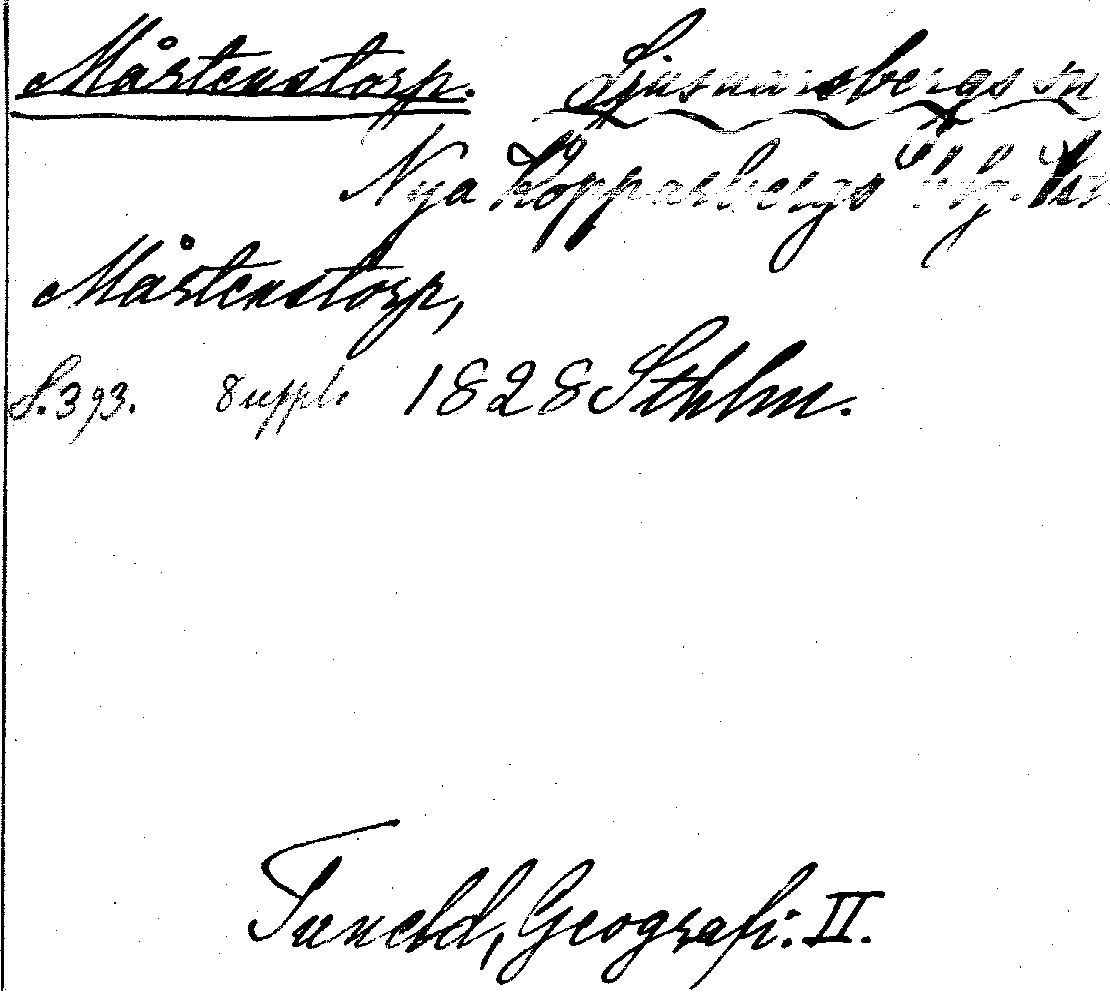 Mårtenstorp. Ljusnarsbergs sn
Nya Kopparbergs blg. Vstm
Mårtenstorp,
S. 393. 8 uppl. 1828 Sthlm.
Tuneld, Geografi: II.